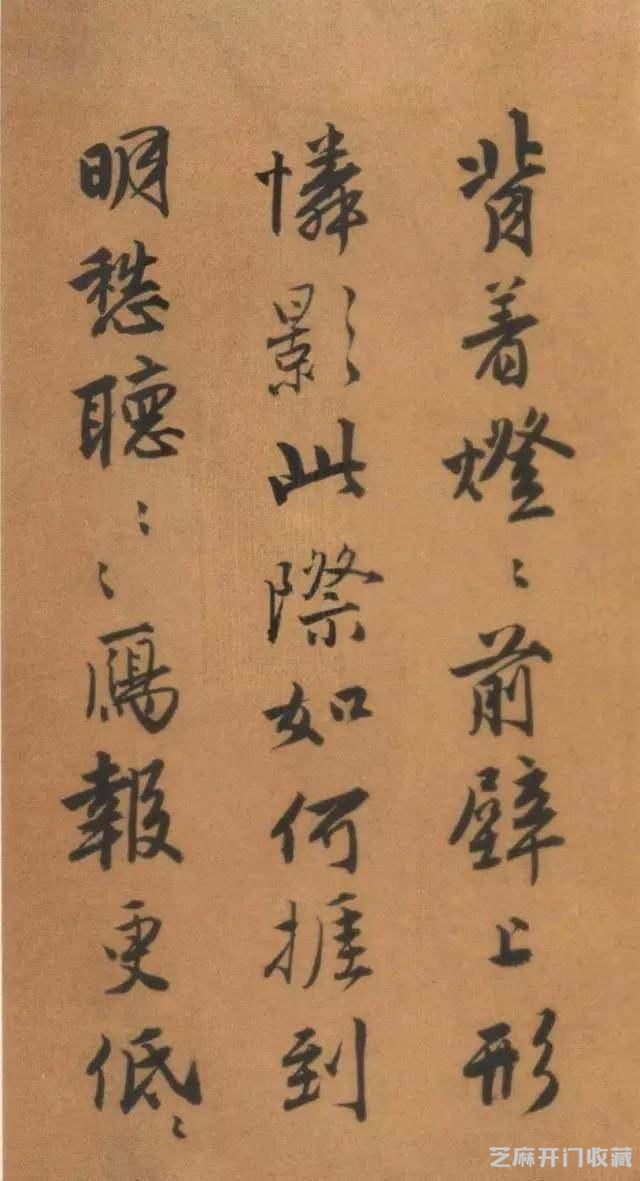 背着燈〻前壁上形
憐影此際如何捱到
明愁聽〻〻鴈報更低〻
芝麻开门收藏